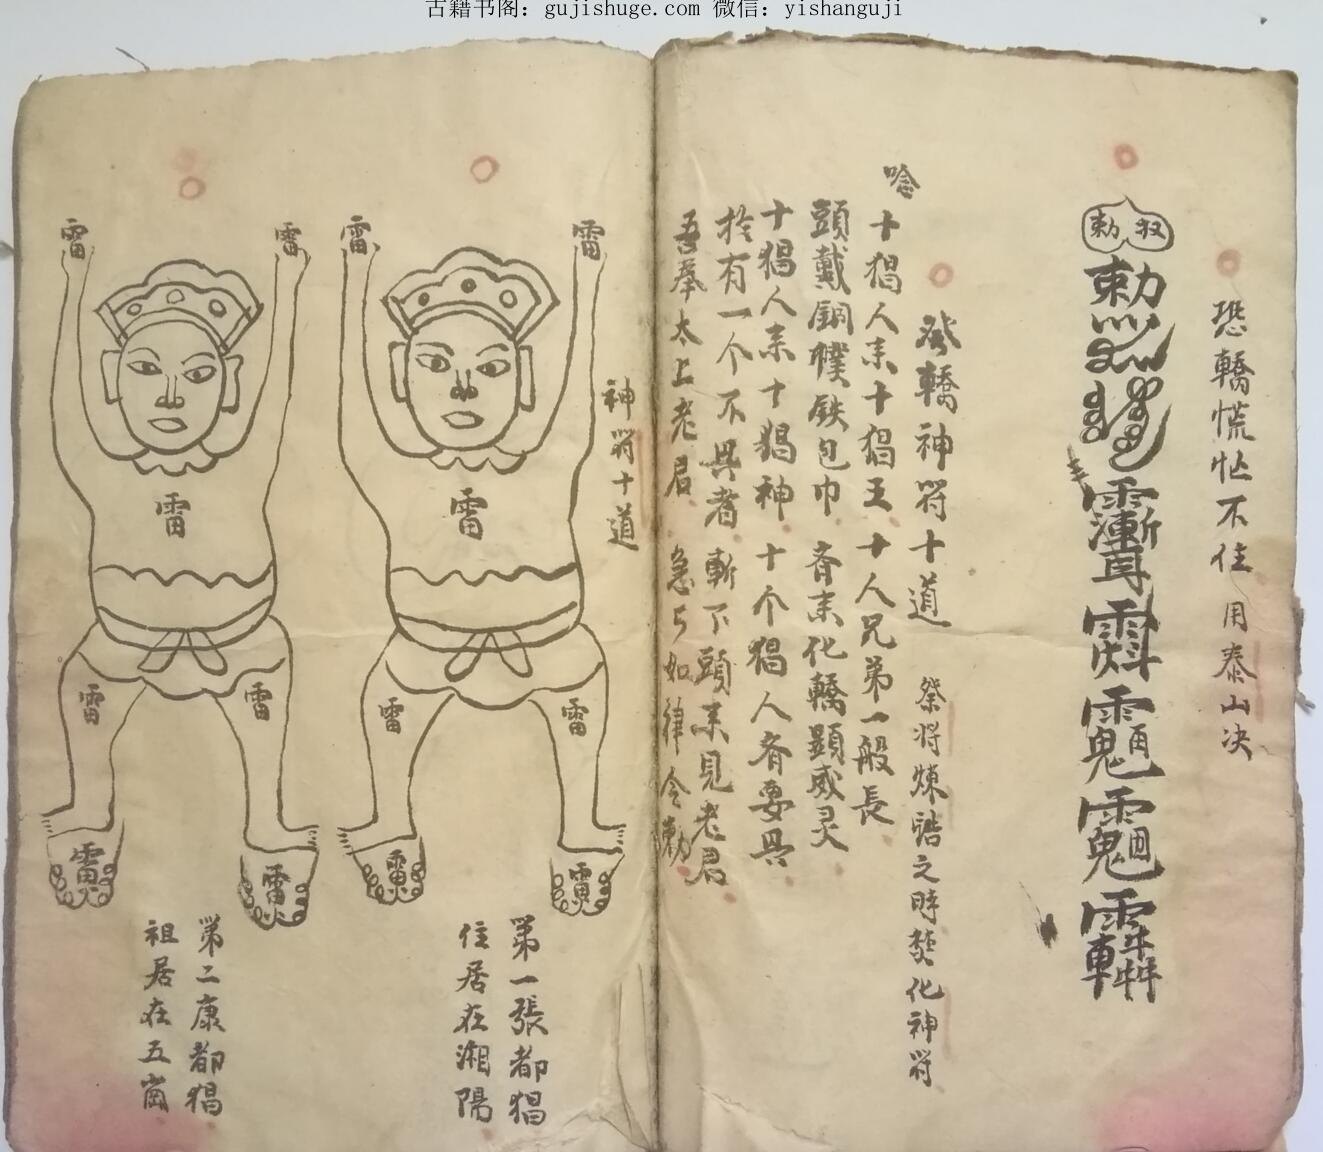 古籍书阁：gujishuge.com 微信：yishanguji
恐轎慌忙不住 用泰山决
勅
發轎神符十道 祭将煉誥之時焚化神符
唸 十猖人来十猖王 十人兄弟一般長
頭戴銅幞鉄包巾 斉来化轎顕威灵
十猖人来十猖神 十个猖人斉要具
拴有一个不具者 斬下頭来見老君
吾奉太上老君 急急如律令勅
神符十道
雷 雷
雷
雷 雷
第一張都猖
住居在湘陽
雷 雷
雷
雷 雷
第二康都猖
祖居在五崗